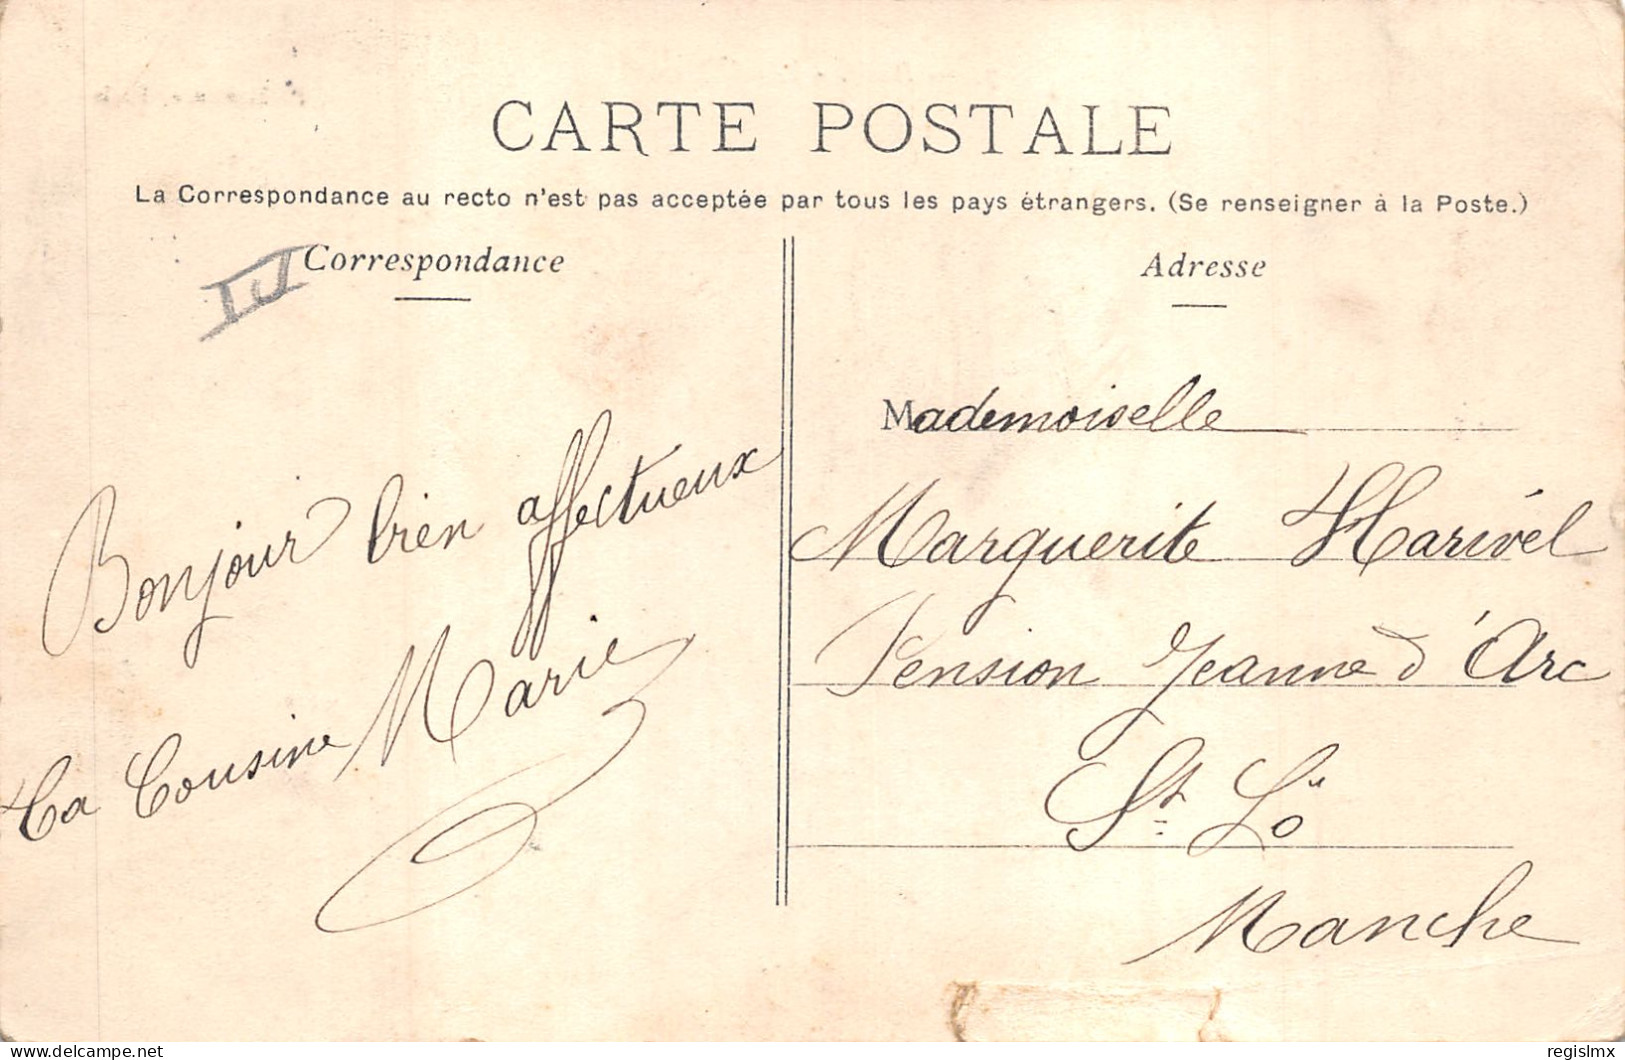 CARTE POSTALE
La Correspondance au recto n'est pas acceptée par tous les pays étrangers. (Se renseigner à la Poste.)
Correspondance
Bonjour bien affectueux
Ta Cousine Marie
Adresse
Mademoiselle
Marguerite Harivel
Pension Jeanne d'Arc
St Lô
Manche
delcampe.net
regislmx